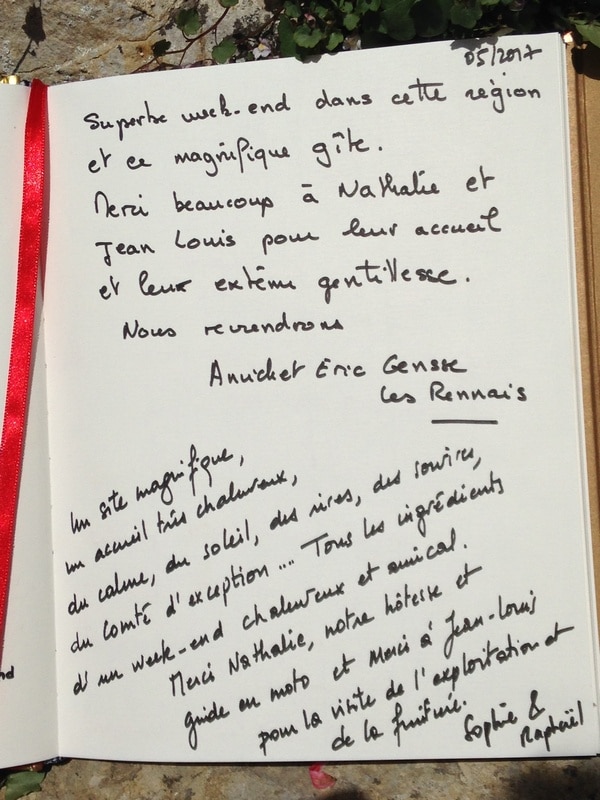 05/2017
Superbe week-end dans cette région
et ce magnifique gîte.
Merci beaucoup à Nathalie et
Jean Louis pour leur accueil
et leur extême gentillesse.
Nous reviendrons
Annick et Eric Gensse
Les Rennais
Un site magnifique,
un accueil très chaleureux,
du calme, du soleil, des rires, des sourires,
du Comté d'exception .... Tous les ingrédients
d'un week-end chaleureux et amical.
Merci Nathalie, notre hôtesse et
guide en moto et Merci à Jean-Louis
pour la visite de l'exploitation et
de la fruitière.
Sophie &
Raphaël
nd